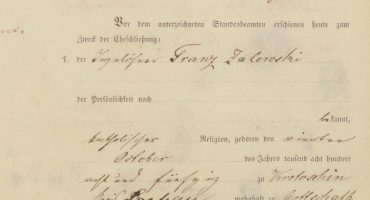 Vor dem unterzeichneten Standesbeamten erschienen heute zum
Zweck der Eheschließung:
1. der Franz Zalewski
der Persönlichkeit nach
bekannt,
katholischer Religion, geboren den vierten
October des Jahres tausend acht hundert
acht und fünfzig zu Krotoschin
wohnhaft zu